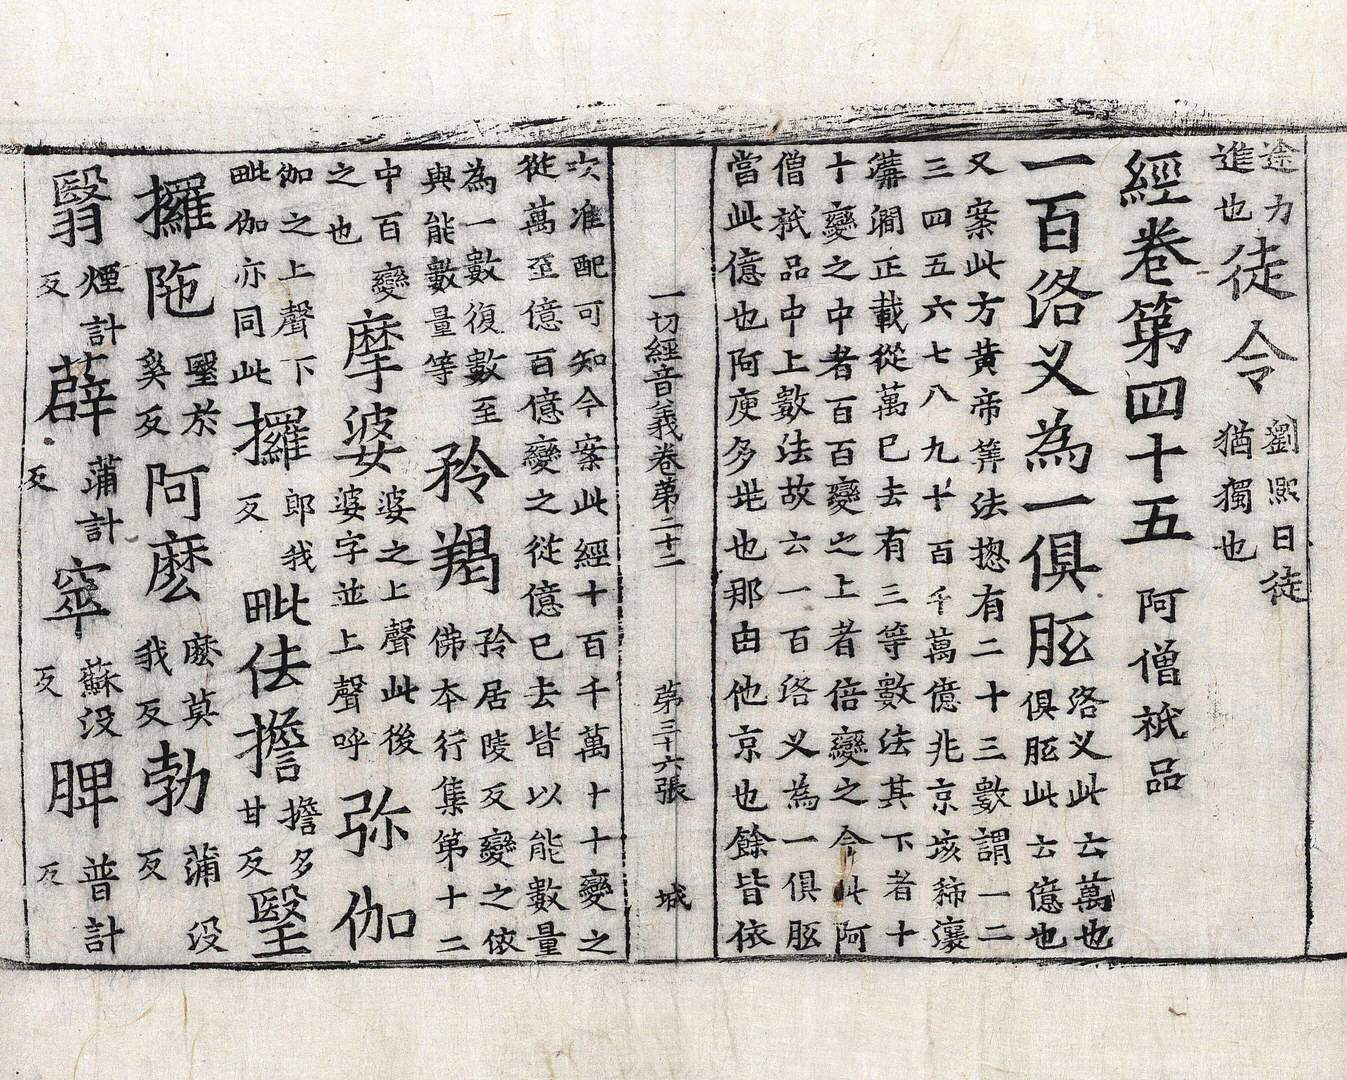 途力進也徒令劉熙曰徒猶獨也
經卷第四十五 阿僧祇品
一百洛叉為一俱胝洛叉此云萬也俱胝此云億也
又案此方黃帝筭法揔有二十三數謂一二
三四五六七八九十百千萬億兆京垓秭瀼
溝澗正載從萬已去有三等數法其下者十
十變之中者百百變之上者倍變之今此阿
僧祇品中上數法故云一百洛叉為一俱胝
當此億也阿庾多兆也那由他京也餘皆依
一切經音義卷第二十二 第三十六張 城
次准配可知今案此經十百千萬十十變之
從萬至億百億變之從億已去皆以能數量
為一數復數至與能數量等矜羯矜居陵反變之依佛本行集第十二
中百變之也摩婆婆之上聲此後婆字並上聲呼弥伽
伽之上聲下毗伽亦同此攞郎我反毗佉擔擔多甘反毉
攞陁毉於奚反阿麼麼莫我反勃蒲沒反
翳煙計反薜蒲計反窣蘇沒反睥普計反